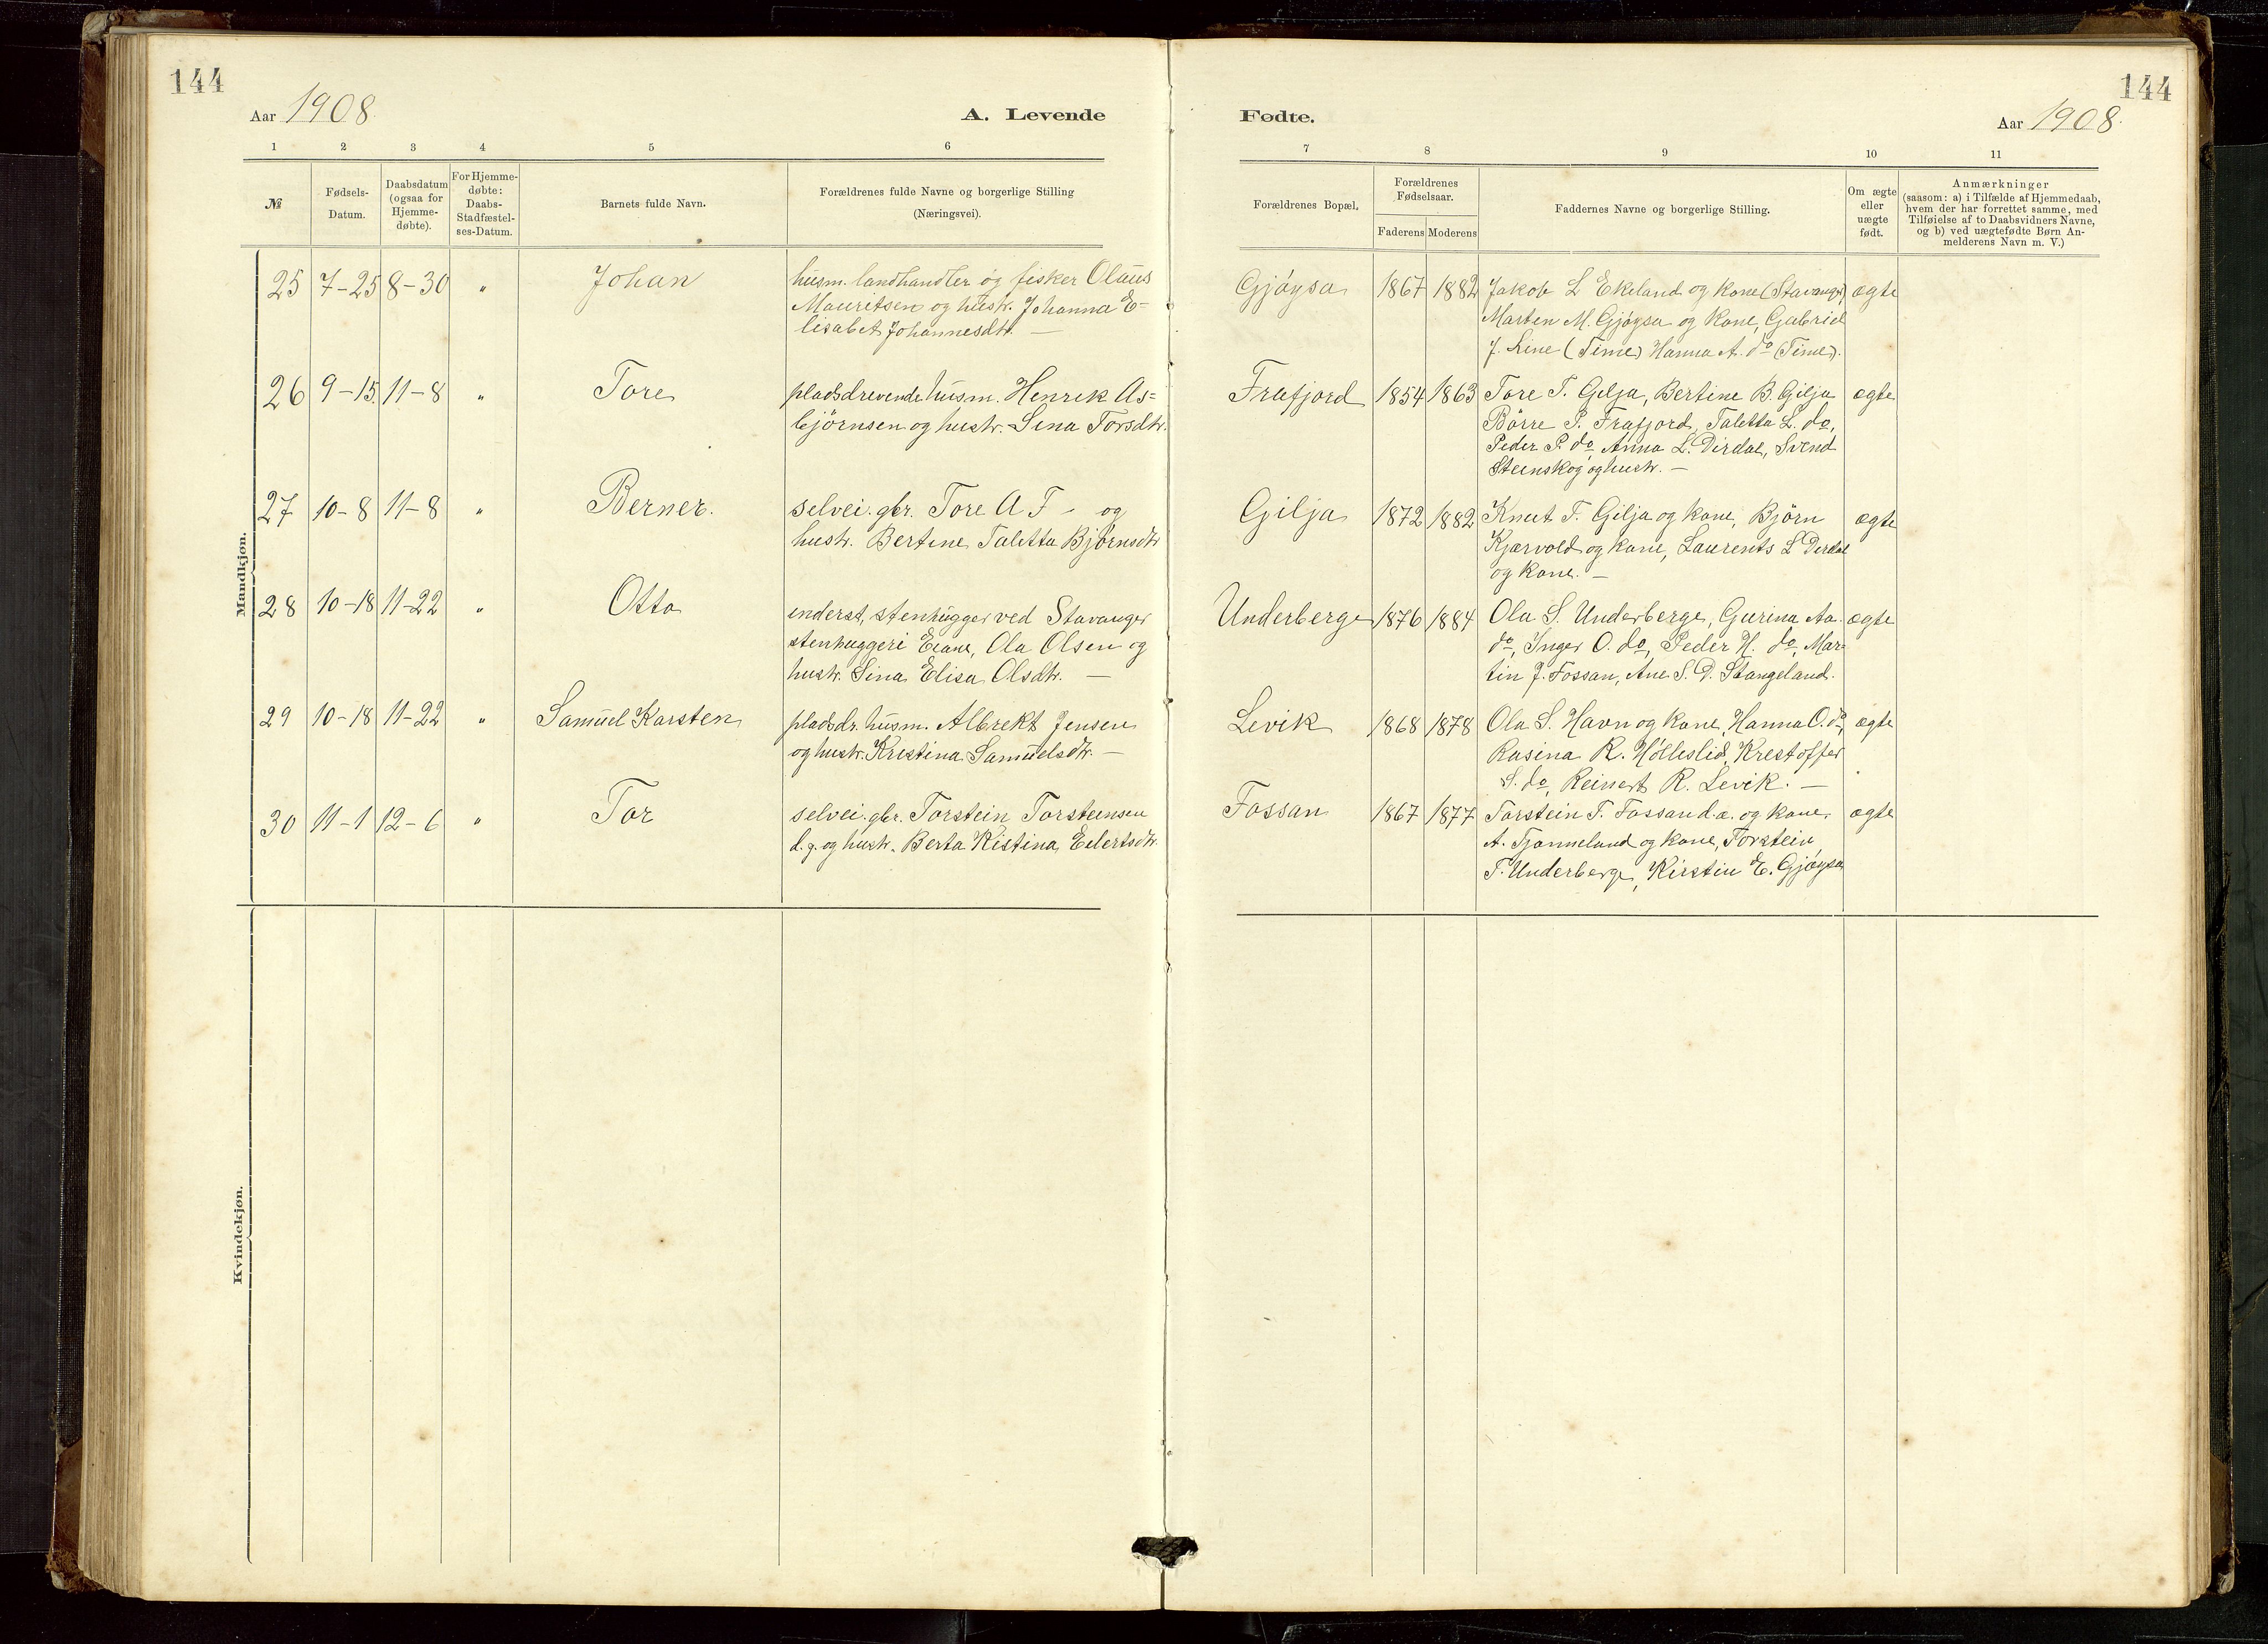 144
Aar 1908.
A. Levende
1 2 3 4 5 6
№
Fødsels-
Datum.
Daabsdatum
(ogsaa for
Hjemme-
døbte).
For Hjemme-
døbte:
Daabs-
Stadfæstel-
ses-Datum.
Barnets fulde Navn.
Forældrenes fulde Navne og borgerlige Stilling
(Næringsvei).
Mandkjøn.
25 7-25 8-30 " Johan
husm. landhandler og fisker Olaus
Mauritsen og hustr. Johanna E=
lisabet Johannesdtr. —
26 9-15. 11-8 " Tore
pladsdrevende husm. Henrik As=
bjørnsen og hustr. Sina Torsdtr.
27 10-8 11-8 " Berner.
selvei. gbr. Tore A T - og
hustr. Bertine Taletta Bjørnsdtr
28 10-18 11-22 " Otto
inderst, stenhugger ved Stavanger
stenhuggeri Eiane, Ola Olsen og
hustr. Sina Elisa Olsdtr. —
29 10-18 11-22 " Samuel Karsten
pladsdr. husm. Albrekt Jensen
og hustr. Kristina Samuelsdtr. —
30 11-1 12-6 " Tor
selvei. gbr. Torstein Torsteinsen
d.y. og hustr. Berta Kistina Eilertsdtr.
Kvindekjøn.
144
Fødte.
Aar 1908.
7 8 9 10 11
Forældrenes Bopæl.
Forældrenes
Fødselsaar.
Faderens Moderens
Faddernes Navne og borgerlige Stilling.
Om ægte
eller
uægte
født.
Anmærkninger
(saasom: a) i Tilfælde af Hjemmedaab,
hvem der har forrettet samme, med
Tilføielse af to Daabsvidners Navne,
og b) ved uægtefødte Børn An-
melderens Navn m. V.)
Gjøysa 1867 1882 Jakob L Ekeland og kone (Stavanger), ægte
Marten M. Gjøysa og kone, Gabriel
J. Line (Time) Hanna A. do (Time).
Frafjord 1854 1863 Tore T. Gilja, Bertine B. Gilja ægte
Børre P. Frafjord, Taletta L. do,
Peder P. do Anna L. Dirdal, Svend
Steinskog og hustr. —
Gilja 1872 1882 Knut T. Gilja og kone, Bjørn ægte
Kjærvold og kone, Laurents L Dirdal
og kone. —
Underberge 1876 1884 Ola S. Underberge, Gurina Aa. ægte
do, Inger O. do, Peder H. do, Mar=
tin J. Fossan, Ane S. D. Stangeland.
Levik 1868 1878 Ola S. Havn og kone, Hanna O. do, ægte
Rasina R. Hølleslid, Kristoffer
S. do, Reinert R. Levik. —
Fossan 1867 1877 Torstein T. Fossan d.æ. og kone, ægte
A. Tjønneland og kone, Torstein
T. Underberge, Kirstin E. Gjøysa